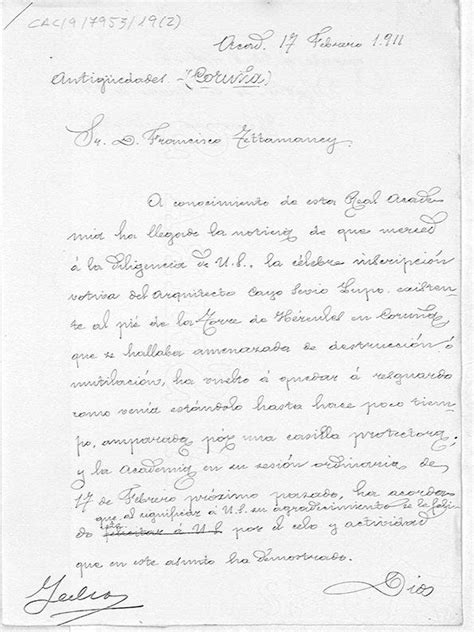 CAC/9/7953/19(2)
Acord. 17 Febrero 1.911
Antigüedades - (Coruña)
Sr. D. Francisco Tettamancy.
A conocimiento de esta Real Acade-
mia ha llegado la noticia de que merced
á la diligencia de U.S. la célebre inscripción
votiva del arquitecto Cayo Sevio Lupo, existen-
te al pié de la Torre de Hércules en Coruña
que se hallaba amenazada de destrucción ó
mutilación, ha vuelto á quedar á resguardo
como venía estándolo hasta hace poco tiem-
po, amparada por una casilla protectora;
y la Academia en su sesión ordinaria de
17 de Febrero próximo pasado, ha acorda-
que al significar á U.S. su agradecimiento se le feli-
do felicitar á U.S. por el celo y actividad
que en este asunto ha demostrado.
Dios